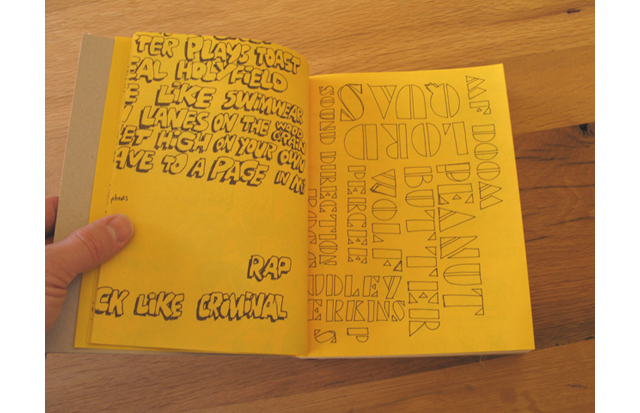 TER PLAYS TOAST
EAL HOLYFIELD
E LIKE SWIMWEAR
LANES ON THE WOOD GRAIN
ET HIGH ON YOUR OWN
AVE TO A PAGE IN M
phers
RAP
CK LIKE CRIMINAL
MF DOOM
PEANUT
BUTTER
WOLF
PERCEE
P
LORD
QUAS
SOUND DIRECTION
UDLEY
ERKINS